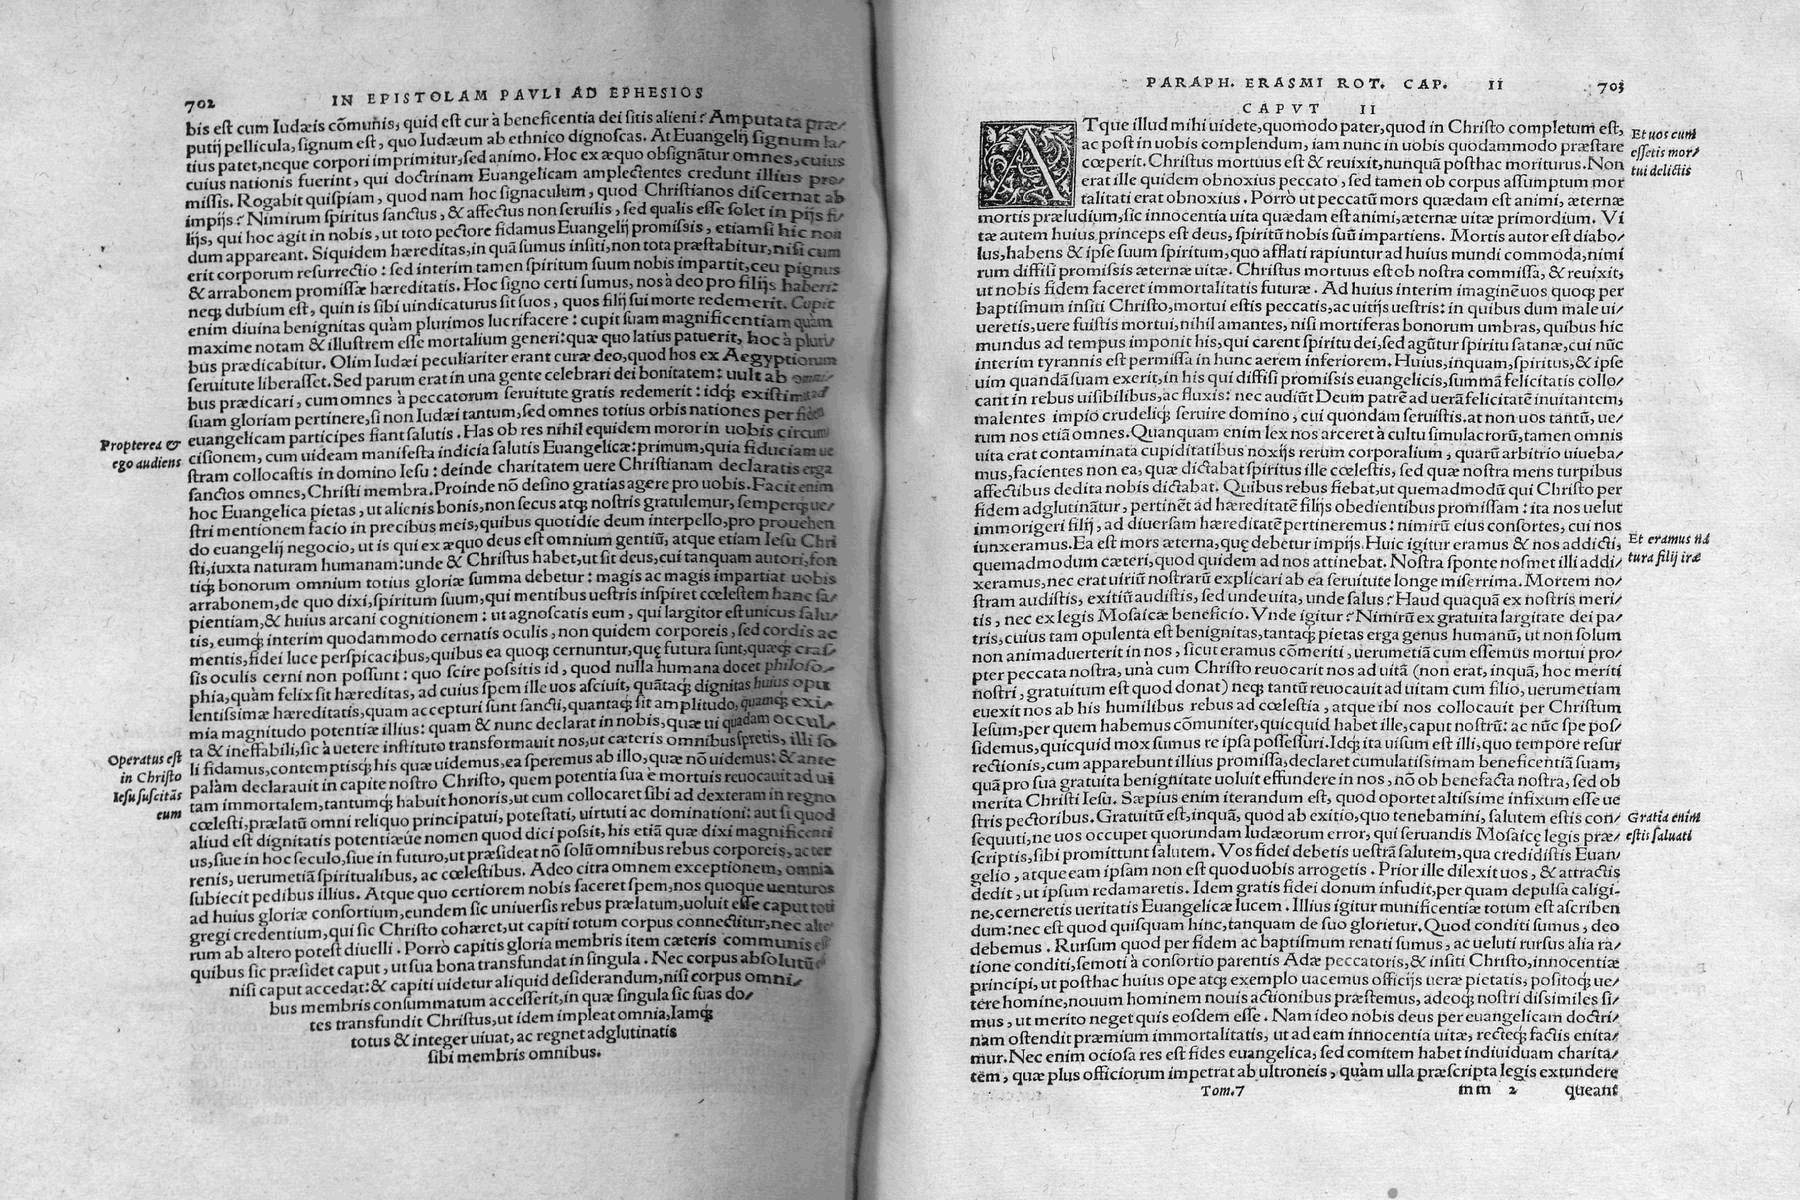 702
IN EPISTOLAM PAVLI AD EPHESIOS
bis est cum Iudæis cōmunis, quid est cur à beneficentia dei sitis alieni? Amputata præ/
putij pellicula, signum est, quo Iudæum ab ethnico dignoscas. At Euangelij signum la/
tius patet, neque corpori imprimitur, sed animo. Hoc ex æquo obsignātur omnes, cuius
cuius nationis fuerint, qui doctrinam Euangelicam amplectentes credunt illius pro/
missis. Rogabit quispiam, quod nam hoc signaculum, quod Christianos discernat ab
impijs? Nimirum spiritus sanctus, & affectus non seruilis, sed qualis esse solet in pijs fi/
lijs, qui hoc agit in nobis, ut toto pectore fidamus Euangelij promissis, etiamsi hic non
dum appareant. Siquidem hæreditas, in quā sumus insiti, non tota præstabitur, nisi cum
erit corporum resurrectio: sed interim tamen spiritum suum nobis impartit, ceu pignus
& arrabonem promissæ hæreditatis. Hoc signo certi sumus, nos à deo pro filijs haberi:
neq; dubium est, quin is sibi uindicaturus sit suos, quos filij sui morte redemerit. Cupit
enim diuina benignitas quàm plurimos lucrifacere: cupit suam magnificentiam quàm
maxime notam & illustrem esse mortalium generi: quæ quo latius patuerit, hoc à pluri/
bus prædicabitur. Olim Iudæi peculiariter erant curæ deo, quod hos ex Aegyptiorum
seruitute liberasset. Sed parum erat in una gente celebrari dei bonitatem: uult ab omni/
bus prædicari, cum omnes à peccatorum seruitute gratis redemerit: idq; existimat ad
suam gloriam pertinere, si non Iudæi tantum, sed omnes totius orbis nationes per fidem
euangelicam participes fiant salutis. Has ob res nihil equidem moror in uobis circum
cisionem, cum uideam manifesta indicia salutis Euangelicæ: primum, quia fiduciam ue
stram collocastis in domino Iesu: deinde charitatem uere Christianam declaratis erga
sanctos omnes, Christi membra. Proinde nō desino gratias agere pro uobis. Facit enim
hoc Euangelica pietas, ut alienis bonis, non secus atq; nostris gratulemur, semperq; ue/
stri mentionem facio in precibus meis, quibus quotidie deum interpello, pro prouehen
do euangelij negocio, ut is qui ex æquo deus est omnium gentiū, atque etiam Iesu Chri
sti, iuxta naturam humanam: unde & Christus habet, ut sit deus, cui tanquam autori, fon
tiq; bonorum omnium totius gloriæ summa debetur: magis ac magis impartiat uobis
arrabonem, de quo dixi, spiritum suum, qui mentibus uestris inspiret cœlestem hanc sa/
pientiam, & huius arcani cognitionem: ut agnoscatis eum, qui largitor est unicus salu/
tis, eumq; interim quodammodo cernatis oculis, non quidem corporeis, sed cordis ac
mentis, fidei luce perspicacibus, quibus ea quoq; cernuntur, quę futura sunt, quæq; cras/
sis oculis cerni non possunt: quo scire possitis id, quod nulla humana docet philoso/
phia, quàm felix sit hæreditas, ad cuius spem ille uos asciuit, quātaq; dignitas huius opu
lentissimæ hæreditatis, quam accepturi sunt sancti, quantaq; sit amplitudo, quamq; exi/
mia magnitudo potentiæ illius: quam & nunc declarat in nobis, quæ ui quadam occul/
ta & ineffabili, sic à uetere instituto transformauit nos, ut cæteris omnibus spretis, illi so
li fidamus, contemptisq; his quæ uidemus, ea speremus ab illo, quæ nō uidemus: & ante
palàm declarauit in capite nostro Christo, quem potentia sua è mortuis reuocauit ad ui
tam immortalem, tantumq; habuit honoris, ut eum collocaret sibi ad dexteram in regno
cœlesti, prælatū omni reliquo principatui, potestati, uirtuti ac dominationi: aut si quod
aliud est dignitatis potentiæue nomen quod dici possit, his etiā quæ dixi magnificenti
us, siue in hoc seculo, siue in futuro, ut præsideat nō solū omnibus rebus corporeis, ac ter
renis, uerumetiā spiritualibus, ac cœlestibus. Adeo citra omnem exceptionem, omnia
subiecit pedibus illius. Atque quo certiorem nobis faceret spem, nos quoque uenturos
ad huius gloriæ consortium, eundem sic uniuersis rebus prælatum, uoluit esse caput toti
gregi credentium, qui sic Christo cohæret, ut capiti totum corpus connectitur, nec alte/
rum ab altero potest diuelli. Porrò capitis gloria membris item cæteris communis est
quibus sic præsidet caput, ut sua bona transfundat in singula. Nec corpus absolutū
nisi caput accedat: & capiti uidetur aliquid desiderandum, nisi corpus omni/
bus membris consummatum accesserit, in quæ singula sic suas do/
tes transfundit Christus, ut idem impleat omnia, Iamq;
totus & integer uiuat, ac regnet adglutinatis
sibi membris omnibus.
Propterea &
ego audiens
Operatus est
in Christo
Iesu suscitās
eum
PARAPH. ERASMI ROT. CAP. II
703
CAPVT II
ATque illud mihi uidete, quomodo pater, quod in Christo completum est,
ac post in uobis complendum, iam nunc in uobis quodammodo præstare
cœperit. Christus mortuus est & reuixit, nunquā posthac moriturus. Non
erat ille quidem obnoxius peccato, sed tamen ob corpus assumptum mor
talitati erat obnoxius. Porrò ut peccatū mors quædam est animi, æternæ
mortis præludium, sic innocentia uita quædam est animi, æternæ uitæ primordium. Vi
tæ autem huius princeps est deus, spiritū nobis suū impartiens. Mortis autor est diabo/
lus, habens & ipse suum spiritum, quo afflati rapiuntur ad huius mundi commoda, nimi
rum diffisi promissis æternæ uitæ. Christus mortuus est ob nostra commissa, & reuixit,
ut nobis fidem faceret immortalitatis futuræ. Ad huius interim imaginē uos quoq; per
baptismum insiti Christo, mortui estis peccatis, ac uitijs uestris: in quibus dum male ui/
ueretis, uere fuistis mortui, nihil amantes, nisi mortiferas bonorum umbras, quibus hic
mundus ad tempus imponit his, qui carent spiritu dei, sed agūtur spiritu satanæ, cui nūc
interim tyrannis est permissa in hunc aerem inferiorem. Huius, inquam, spiritus, & ipse
uim quandā suam exerit, in his qui diffisi promissis euangelicis, summā felicitatis collo/
cant in rebus uisibilibus, ac fluxis: nec audiūt Deum patrē ad uerā felicitatē inuitantem,
malentes impio crudeliq; seruire domino, cui quondam seruistis. at non uos tantū, ue/
rum nos etiā omnes. Quanquam enim lex nos arceret à cultu simulacrorū, tamen omnis
uita erat contaminata cupiditatibus noxijs rerum corporalium, quarū arbitrio uiueba/
mus, facientes non ea, quæ dictabat spiritus ille cœlestis, sed quæ nostra mens turpibus
affectibus dedita nobis dictabat. Quibus rebus fiebat, ut quemadmodū qui Christo per
fidem adglutinātur, pertinēt ad hæreditatē filijs obedientibus promissam: ita nos uelut
immorigeri filij, ad diuersam hæreditatē pertineremus: nimirū eius consortes, cui nos
iunxeramus. Ea est mors æterna, quę debetur impijs. Huic igitur eramus & nos addicti,
quemadmodum cæteri, quod quidem ad nos attinebat. Nostra sponte nosmet illi addi/
xeramus, nec erat uiriū nostrarū explicari ab ea seruitute longe miserrima. Mortem no/
stram audistis, exitiū audistis, sed unde uita, unde salus? Haud quaquā ex nostris meri/
tis, nec ex legis Mosaicæ beneficio. Vnde igitur? Nimirū ex gratuita largitate dei pa/
tris, cuius tam opulenta est benignitas, tantaq; pietas erga genus humanū, ut non solum
non animaduerterit in nos, sicut eramus cōmeriti, uerumetiā cum essemus mortui pro/
pter peccata nostra, unà cum Christo reuocarit nos ad uitā (non erat, inquā, hoc meriti
nostri, gratuitum est quod donat) neq; tantū reuocauit ad uitam cum filio, uerumetiam
euexit nos ab his humilibus rebus ad cœlestia, atque ibi nos collocauit per Christum
Iesum, per quem habemus cōmuniter, quicquid habet ille, caput nostrū: ac nūc spe pos/
sidemus, quicquid mox sumus re ipsa possessuri. Idq; ita uisum est illi, quo tempore resur
rectionis, cum apparebunt illius promissa, declaret cumulatissimam beneficentiā suam,
quā pro sua gratuita benignitate uoluit effundere in nos, nō ob benefacta nostra, sed ob
merita Christi Iesu. Sæpius enim iterandum est, quod oportet altissime infixum esse ue
stris pectoribus. Gratuitū est, inquā, quod ab exitio, quo tenebamini, salutem estis con/
sequuti, ne uos occupet quorundam Iudæorum error, qui seruandis Mosaicę legis præ/
scriptis, sibi promittunt salutem. Vos fidei debetis uestrā salutem, qua credidistis Euan/
gelio, atque eam ipsam non est quod uobis arrogetis. Prior ille dilexit uos, & attractis
dedit, ut ipsum redamaretis. Idem gratis fidei donum infudit, per quam depulsa caligi-
ne, cerneretis ueritatis Euangelicæ lucem. Illius igitur munificentiæ totum est ascriben
dum: nec est quod quisquam hinc, tanquam de suo glorietur. Quod conditi sumus, deo
debemus. Rursum quod per fidem ac baptismum renati sumus, ac ueluti rursus alia ra/
tione conditi, semoti à consortio parentis Adæ peccatoris, & insiti Christo, innocentiæ
principi, ut posthac huius ope atq; exemplo uacemus officijs ueræ pietatis, positoq; ue/
tere homine, nouum hominem nouis actionibus præstemus, adeoq; nostri dissimiles si/
mus, ut merito neget quis eosdem esse. Nam ideo nobis deus per euangelicam doctri/
nam ostendit præmium immortalitatis, ut ad eam innocentia uitæ, recteq; factis enita/
mur. Nec enim ociosa res est fides euangelica, sed comitem habet indiuiduam charita/
tem, quæ plus officiorum impetrat ab ultroneis, quàm ulla præscripta legis extundere
Tom. 7 mm 2 queant
Et uos cum
essetis mor/
tui delictis
Et eramus na
tura filij iræ
Gratia enim
estis saluati